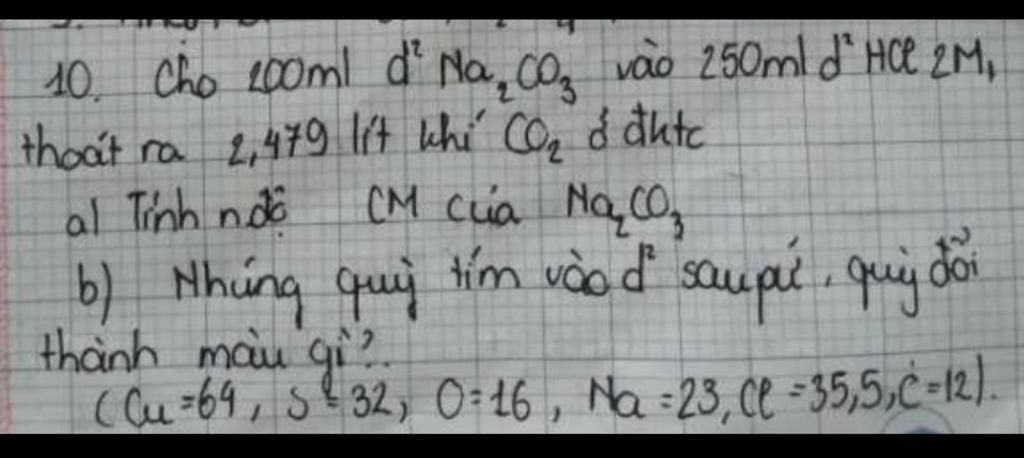 10. Cho 200ml d² Na₂CO₃ vào 250ml d² HCl 2M,
thoát ra 2,479 lít khí CO₂ ở đktc
a) Tính n độ CM của Na₂CO₃
b) Nhúng quỳ tím vào d² sau pứ, quỳ đổi
thành màu gì?
(Cu=64, S=32, O=16, Na=23, Cl=35,5, C=12).